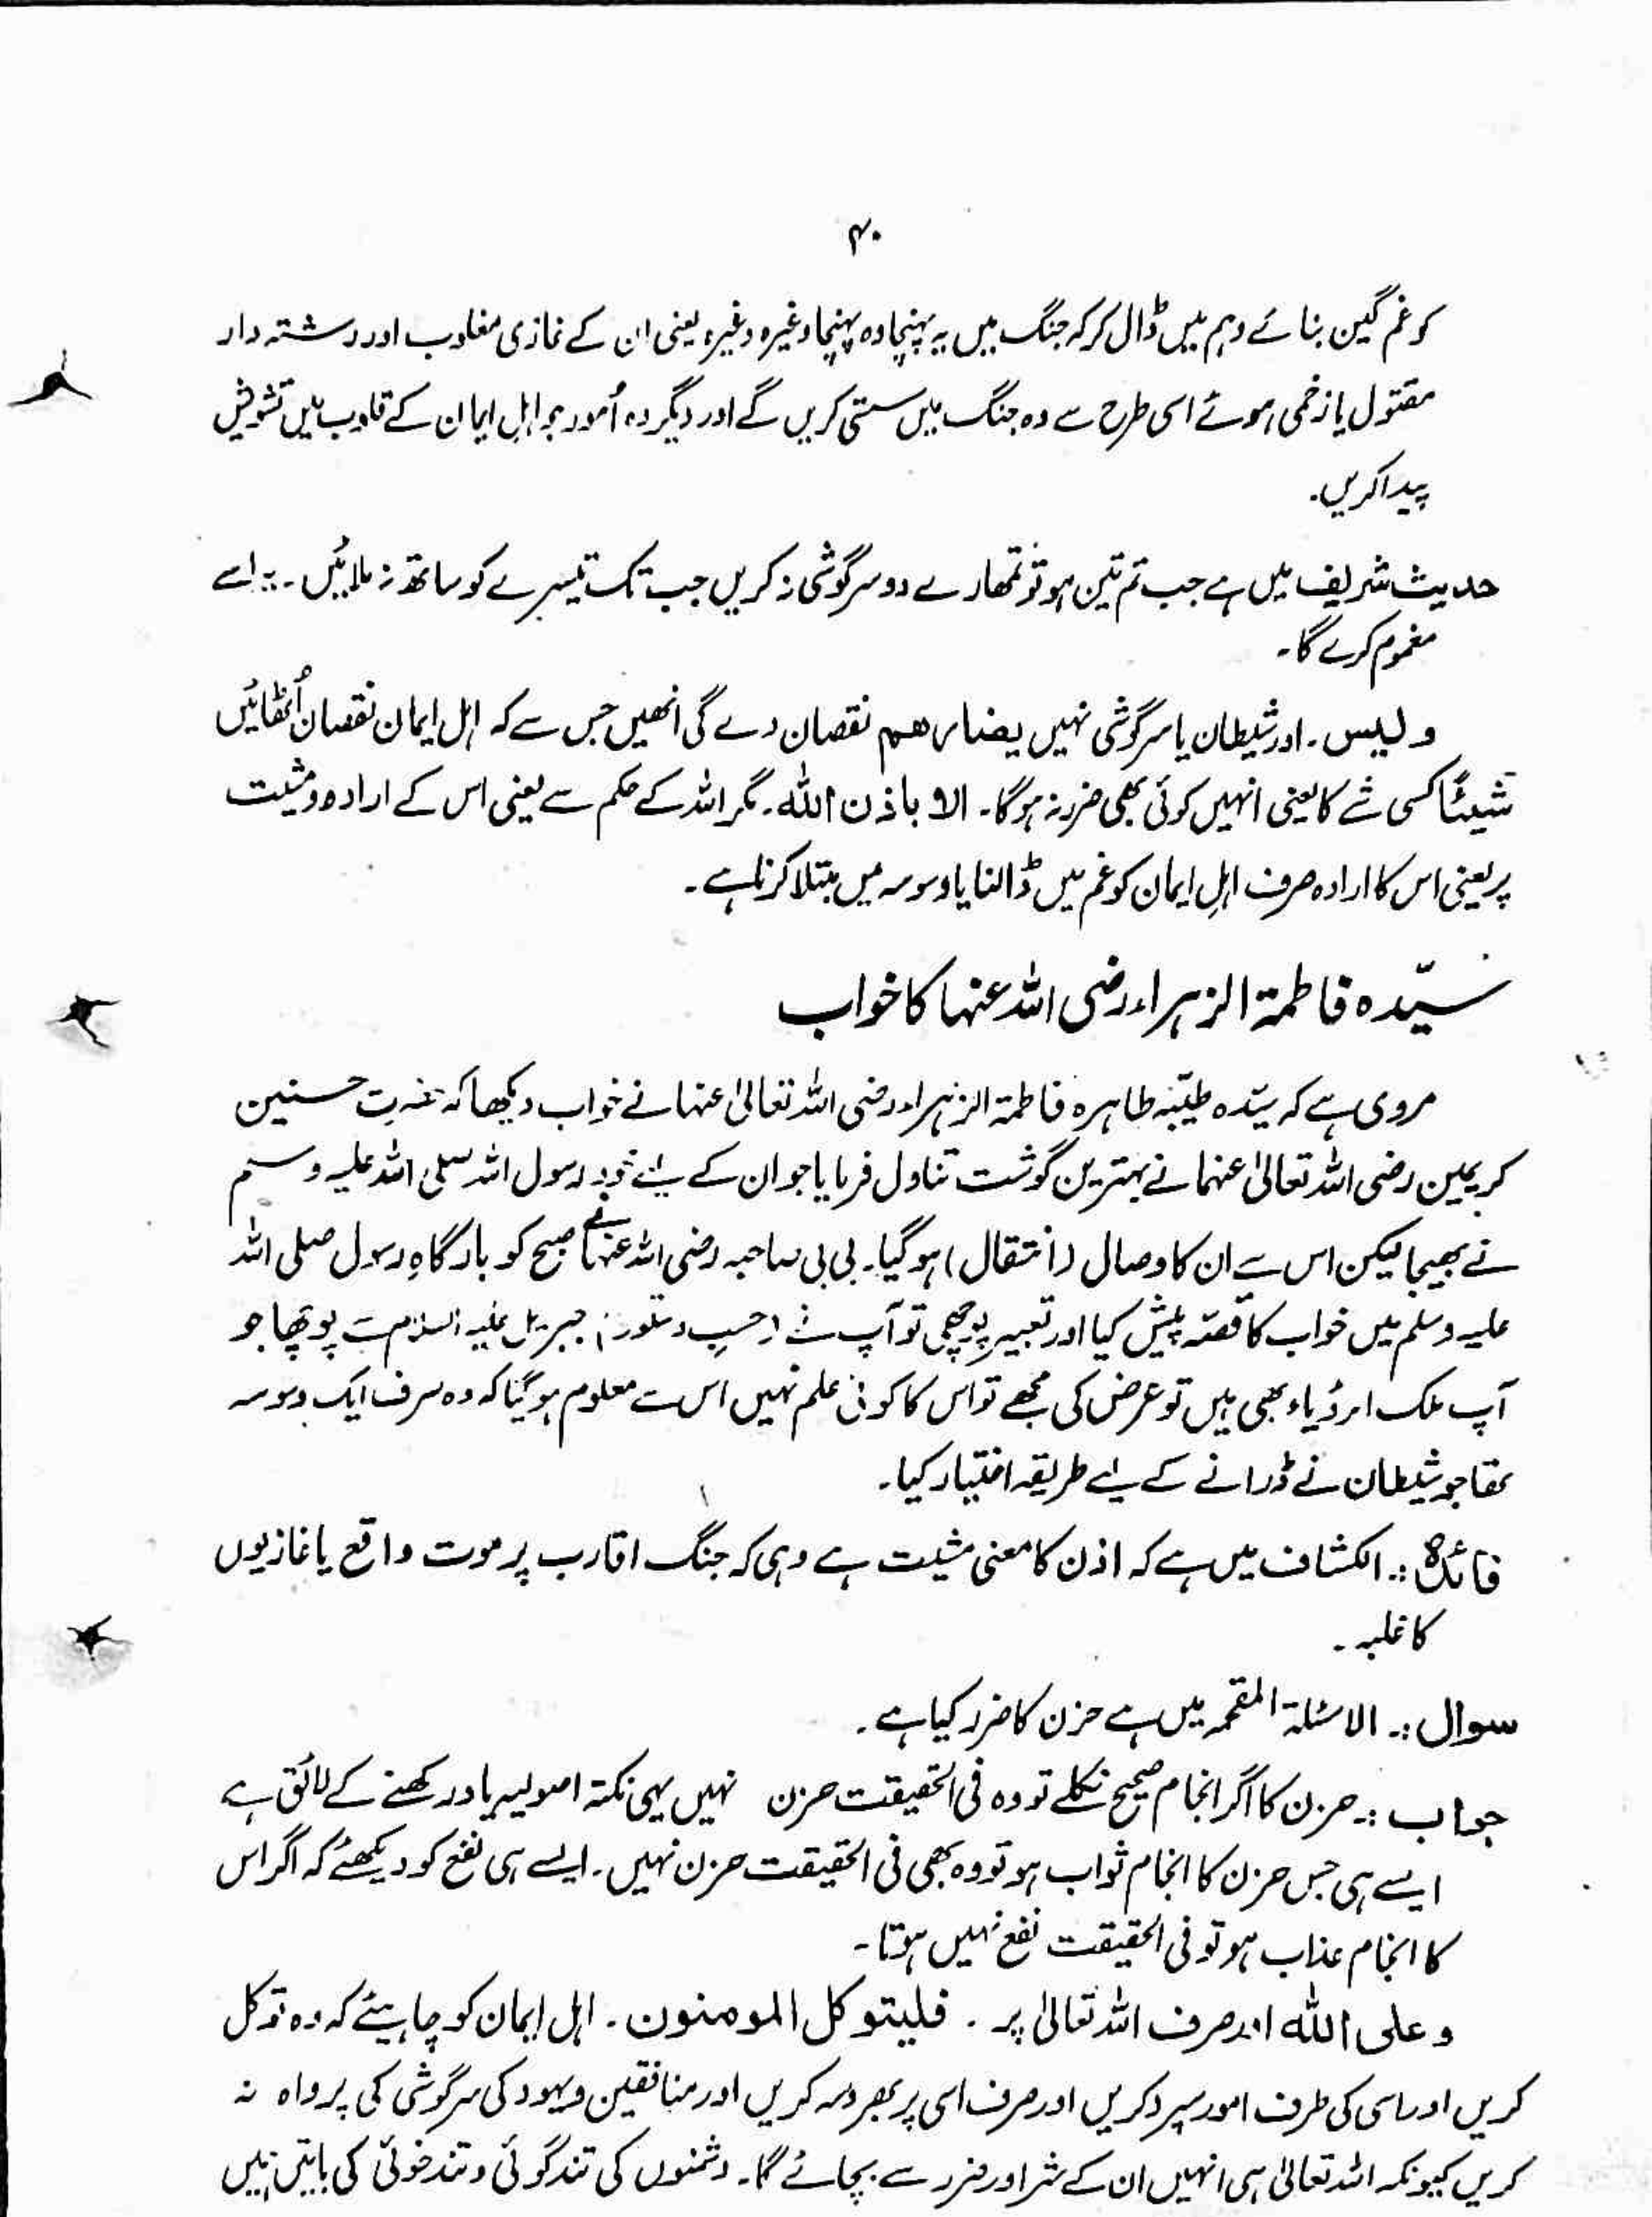 ۴۰
کو غم گین بنائے وہم میں ڈال کر کہ جنگ میں یہ پہنچا وہ پہنچا وغیرہ وغیرہ یعنی ان کے غازی مغلوب اور رشتہ دار
مقتول یا زخمی ہوئے اسی طرح سے وہ جنگ میں سستی کریں گے اور دیگر وہ اُمور جو اہلِ ایمان کے قلوب میں تشویش
پیدا کریں۔
حدیث شریف میں ہے جب تم تین ہو تو تمھارے دو سرگوشی نہ کریں جب تک تیسرے کو ساتھ نہ ملائیں۔ یہ اسے
مغموم کرے گا۔
و لیس۔ اور شیطان یا سرگوشی نہیں بضارھم نقصان دے گی انھیں جس سے کہ اہل ایمان نقصان اُٹھائیں
شیئًا کسی شے کا یعنی انہیں کوئی بھی ضرر نہ ہوگا۔ الا باذن اللہ۔ مگر اللہ کے حکم سے یعنی اس کے ارادہ و مشیت
پر یعنی اس کا ارادہ صرف اہلِ ایمان کو غم میں ڈالنا یا وسوسہ میں مبتلا کرنا ہے۔
سیّدہ فاطمۃ الزہراء رضی اللہ عنہا کا خواب
مروی ہے کہ سیّدہ طیّبہ طاہرہ فاطمۃ الزہراء رضی اللہ تعالیٰ عنہا نے خواب دیکھا کہ حضرت حسنین
کریمین رضی اللہ تعالیٰ عنہما نے بہترین گوشت تناول فرمایا جو ان کے لیے خود رسول اللہ صلی اللہ علیہ وسلم
نے بھیجا لیکن اس سے ان کا وصال (انتقال) ہوگیا۔ بی بی صاحبہ رضی اللہ عنہا نے صبح کو بارگاہِ رسول صلی اللہ
علیہ وسلم میں خواب کا قصّہ پیش کیا اور تعبیر پوچھی تو آپ نے (حسبِ دستور) جبریل علیہ السلام سے پوچھا جو
آپ ملک الرؤیاء بھی ہیں تو عرض کی مجھے تو اس کا کوئی علم نہیں اس سے معلوم ہوگیا کہ وہ صرف ایک وسوسہ
تھا جو شیطان نے ڈرانے کے لیے طریقہ اختیار کیا۔
فائدہ:۔ الکشاف میں ہے کہ اذن کا معنی مشیت ہے وہی کہ جنگ اقارب پر موت واقع یا غازیوں
کا غلبہ۔
سوال:۔ الاسئلۃ المقحمہ میں ہے حزن کا ضرر کیا ہے۔
جواب:۔ حزن کا اگر انجام صحیح نکلے تو وہ فی الحقیقت حزن نہیں یہی نکتہ اصولیہ یاد رکھنے کے لائق ہے
ایسے ہی جس حزن کا انجام ثواب ہو تو وہ بھی فی الحقیقت حزن نہیں۔ ایسے ہی نفع کو دیکھئے کہ اگر اس
کا انجام عذاب ہو تو فی الحقیقت نفع نہیں ہوتا۔
و علی اللہ اور صرف اللہ تعالیٰ پر۔ فلیتوکل المومنون۔ اہل ایمان کو چاہیئے کہ وہ توکل
کریں اور اسی کی طرف امور سپرد کریں اور صرف اسی پر بھروسہ کریں اور منافقین و یہود کی سرگوشی کی پرواہ نہ
کریں کیونکہ اللہ تعالیٰ ہی انہیں ان کے شر اور ضرر سے بچائے گا۔ دشمنوں کی تند گوئی و تند خوئی کی باتیں ہیں